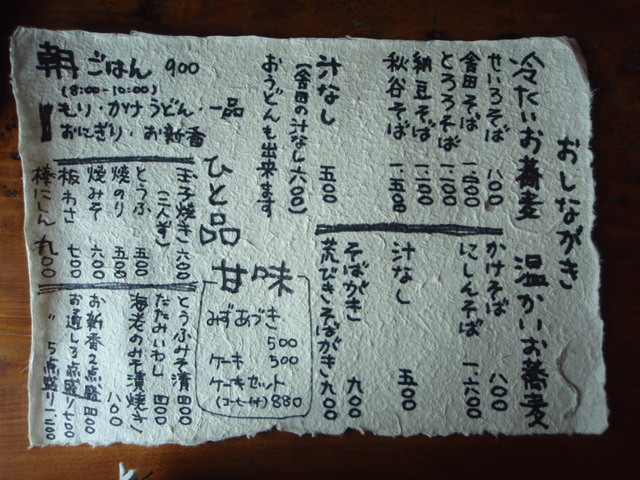 おしながき
冷たいお蕎麦
せいろそば 八〇〇
舎田そば 一、二〇〇
とろろそば 一、二〇〇
納豆そば 一、二〇〇
秋谷そば 一、五〇〇
汁なし 五〇〇
(舎田の汁なし六〇〇)
おうどんも出来ます
温かいお蕎麦
かけそば 八〇〇
にしんそば 一、六〇〇
汁なし 五〇〇
そばがき 九〇〇
荒びきそばがき 九〇〇
朝ごはん 900
(8:00-10:00)
もり・かけうどん・一品
おにぎり・お新香
ひと品
玉子焼き 六〇〇
(二人ず)
とうふ 五〇〇
焼のり 五〇〇
焼みそ 六〇〇
板わさ 七〇〇
棒にしん 九〇〇
とうふみそ漬 四〇〇
たたみいわし 四〇〇
海老のみそ漬焼き 八〇〇
お新香2点盛 四〇〇
お通し3点盛り 七〇〇
〃 5点盛り 一、二〇〇
甘味
みずあづき
500
ケーキ 500
ケーキセット
(コーヒー付) 880